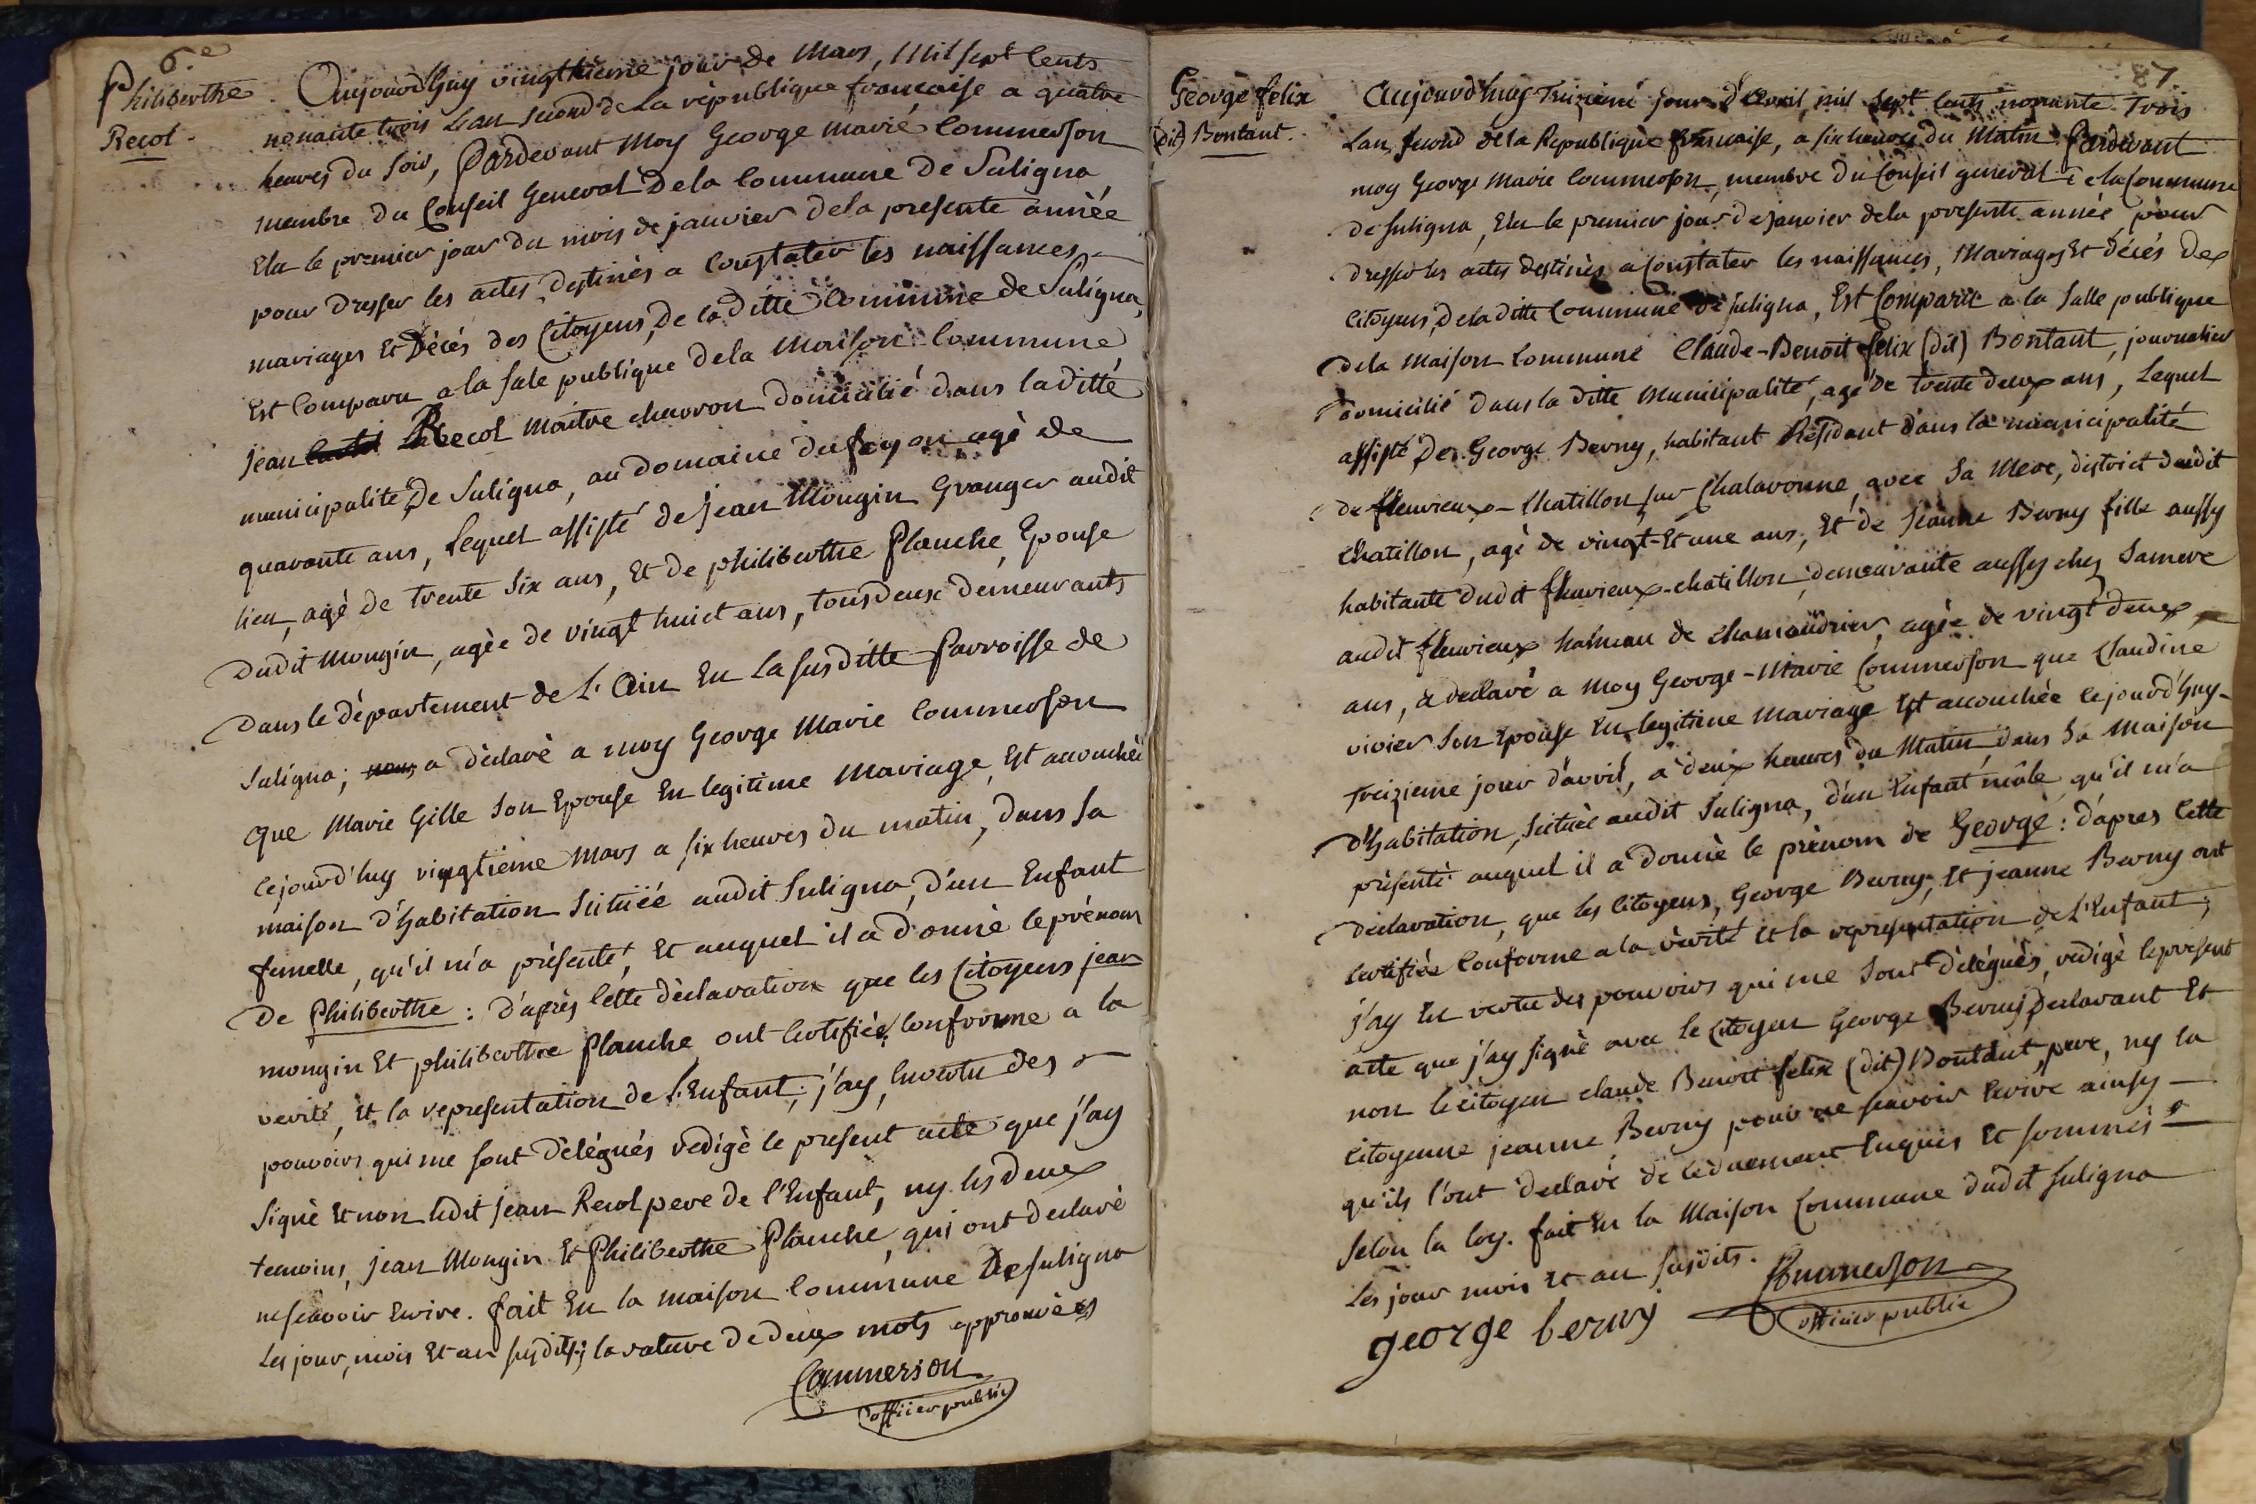 6.e
Philiberthe
Recol.
Aujourd'huy vingtzieme jour de Mars, Mil sept cents
nonante trois L'an second de La république francaise a quatre
heures du soir, Pardevant Moy George Marie Commerson
membre du Conseil General de la Commune de Suligna
Elu le premier jour du mois de janvier de la presente année
pour dresser les actes destinés a Constater les naissances
mariages et Décés des Citoyens, de la ditte Commune de Suligna,
Est Comparu a la sale publique de la Maison Commune
jean Recol Maitre charron domicilié dans la ditte
municipalité de Suligna, au domaine du fayan agé de
quarante ans, Lequel assisté de jean Mongin Granger audit
lieu, agé de trente six ans, et de philiberthe Planche Epouse
dudit Mongin, agée de vingt huict ans, tous deux demeurants
Dans le département de L'Ain En La susditte Parroisse de
Suligna; a déclaré a moy George Marie Commerson
que Marie Gille son Epouse En legitime Mariage, Est accouchée
cejourd'huy vingtieme Mars a six heures du matin, dans sa
maison d'habitation scituéé audit Suligna, d'un Enfant
femelle, qu'il m'a présenté, et auquel il a donné le prénom
De Philiberthe : D'après Cette déclaration que les Citoyens jean
mongin Et philiberthe Planche ont Certifiée Conforme a la
verité, Et la representation de L'Enfant; j'ay, En vertu des
pouvoirs qui me sont délégués redigé le present acte que j'ay
signé Et non ledit jean Recol pere de l'Enfant, ny les deux
temoins, jean Mongin Et Philiberthe Planche, qui ont declaré
ne scavoir Ecrire. fait En la maison Commune De suligna
Les jour, mois Et an susdits; la rature de deux mots approuvées
Commerson
officier public
87.
George felix
(dit) Bontant.
Aujourd'huy Treizieme jour d'Avril, mil sept Cents nonante Trois
Lan second de la Republique francaise, a six heures du Matin Pardevant
moy George Marie Commerson, membre du Conseil general de la Commune
de suligna, Elu le premier jour de janvier de la presente année pour
dresser les actes destinés a Constater les naissances, Mariages Et Décés des
Citoyens, de la ditte Commune de suligna, Est Comparu a la salle publique
de la Maison Commune Claude-Benoit felix (dit) Bontant, journalier
domicilié dans la ditte Municipalité, agé de trente deux ans, Lequel
assisté de George Berny, habitant Résidant dans la municipalité
de fleurieux-Chatillon sur Chalaronne, avec sa Mere, district dudit
Chatillon, agé de vingt-Et une ans, Et de Jeanne Berny fille aussy
habitante dudit fleurieux-chatillon, demeurante aussy chez sa mere
audit fleurieux hameau de chamandrier, agée de vingt deux
ans, a declaré a Moy George-Marie Commerson que Claudine
vivier son Epouse En legitime Mariage Est accouchée cejourd'huy
Treizieme jour d'avril, a deux heures du Matin dans sa Maison
d'habitation, scituée audit Suligna, d'un Enfant mâle qu'il m'a
présenté auquel il a donné le prénom de George : d'apres Cette
declaration, que les Citoyens, George Berny, Et jeanne Berny ont
Certifiée Conforme a la vérité Et la representation de L'Enfant;
j'ay En vertu des pouvoirs qui me sont délégués, redigé le present
acte que j'ay signé avec le Citoyen George Berny declarant Et
non le citoyen claude Benoit felix (dit) Bontant, pere, ny la
Citoyenne jeanne Berny pour ne scavoir Ecrire ainsy
qu'ils l'ont declaré de ce duement Enquis Et sommés
selon la loy. fait En la Maison Commune dudit suligna
Les jour mois Et an susdits.
Commerson
officier public
george berny